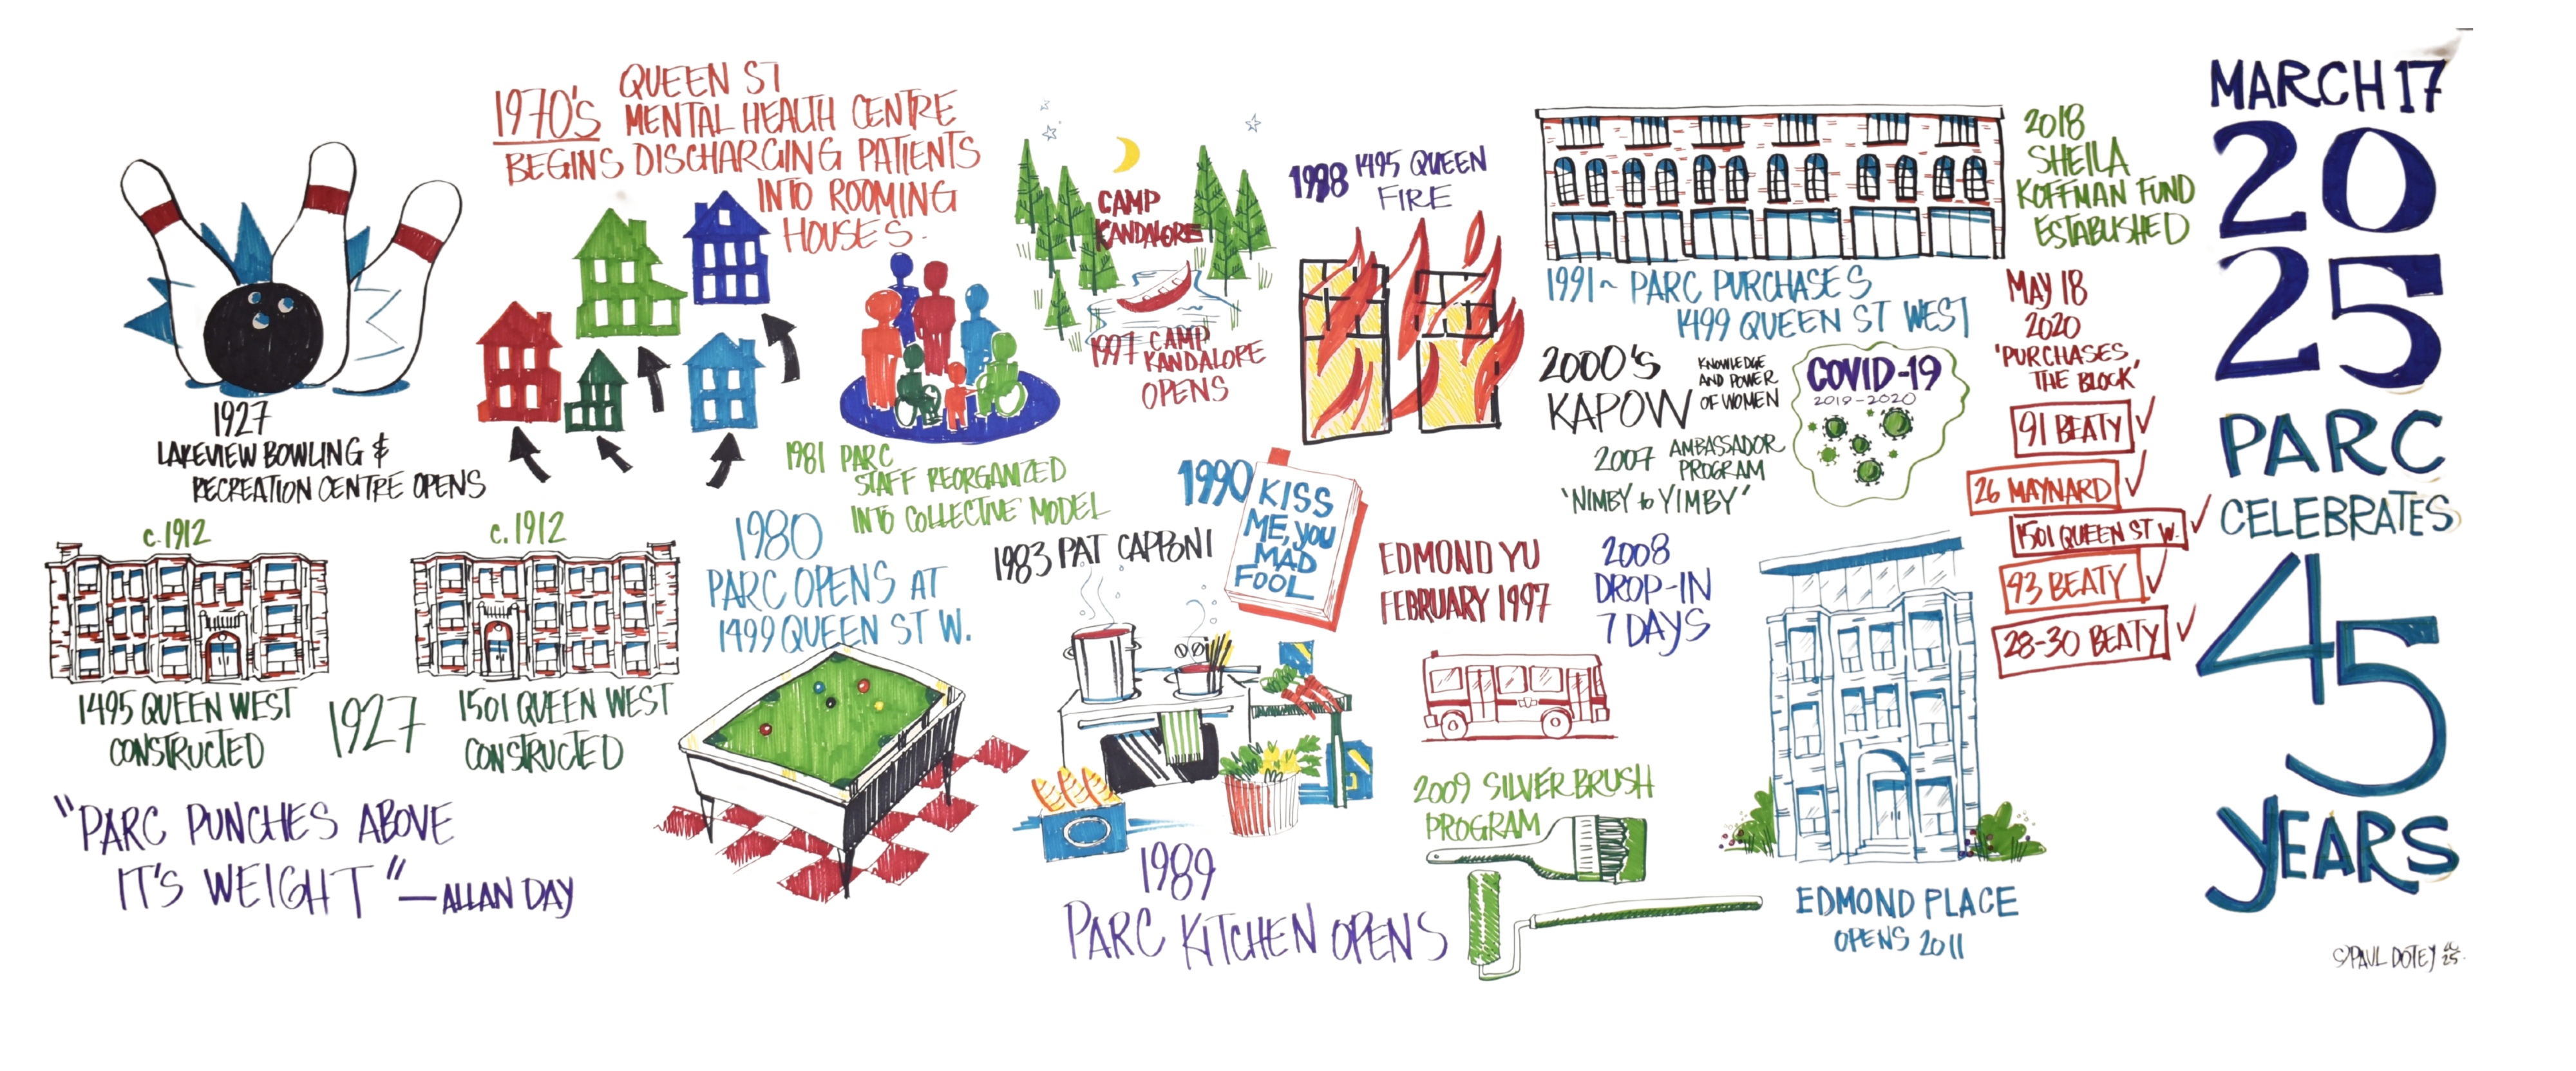 1927
LAKEVIEW BOWLING &
RECREATION CENTRE OPENS
c.1912
1495 QUEEN WEST
CONSTRUCTED
1927
c.1912
1501 QUEEN WEST
CONSTRUCTED
"PARC PUNCHES ABOVE
IT'S WEIGHT" — ALLAN DAY
1970'S QUEEN ST
MENTAL HEALTH CENTRE
BEGINS DISCHARGING PATIENTS
INTO ROOMING
HOUSES.
1980
PARC OPENS AT
1499 QUEEN ST W.
1981 PARC
STAFF REORGANIZED
INTO COLLECTIVE MODEL
1983 PAT CAPPONI
CAMP
KANDALORE
1997 CAMP
KANDALORE
OPENS
1990
KISS
ME, YOU
MAD
FOOL
1989
PARC KITCHEN OPENS
1998 1495 QUEEN
FIRE
EDMOND YU
FEBRUARY 1997
1991~ PARC PURCHASES
1499 QUEEN ST WEST
2000'S
KAPOW
KNOWLEDGE
AND POWER
OF WOMEN
2007 AMBASSADOR
PROGRAM
'NIMBY to YIMBY'
COVID-19
2019-2020
2008
DROP-IN
7 DAYS
2009 SILVER BRUSH
PROGRAM
EDMOND PLACE
OPENS 2011
2018
SHEILA
KOFFMAN FUND
ESTABLISHED
MAY 18
2020
'PURCHASES
THE BLOCK'
91 BEATY
26 MAYNARD
1501 QUEEN ST W.
93 BEATY
28-30 BEATY
MARCH 17
20
25
PARC
CELEBRATES
45
YEARS
©PAUL DOTEY 2025.